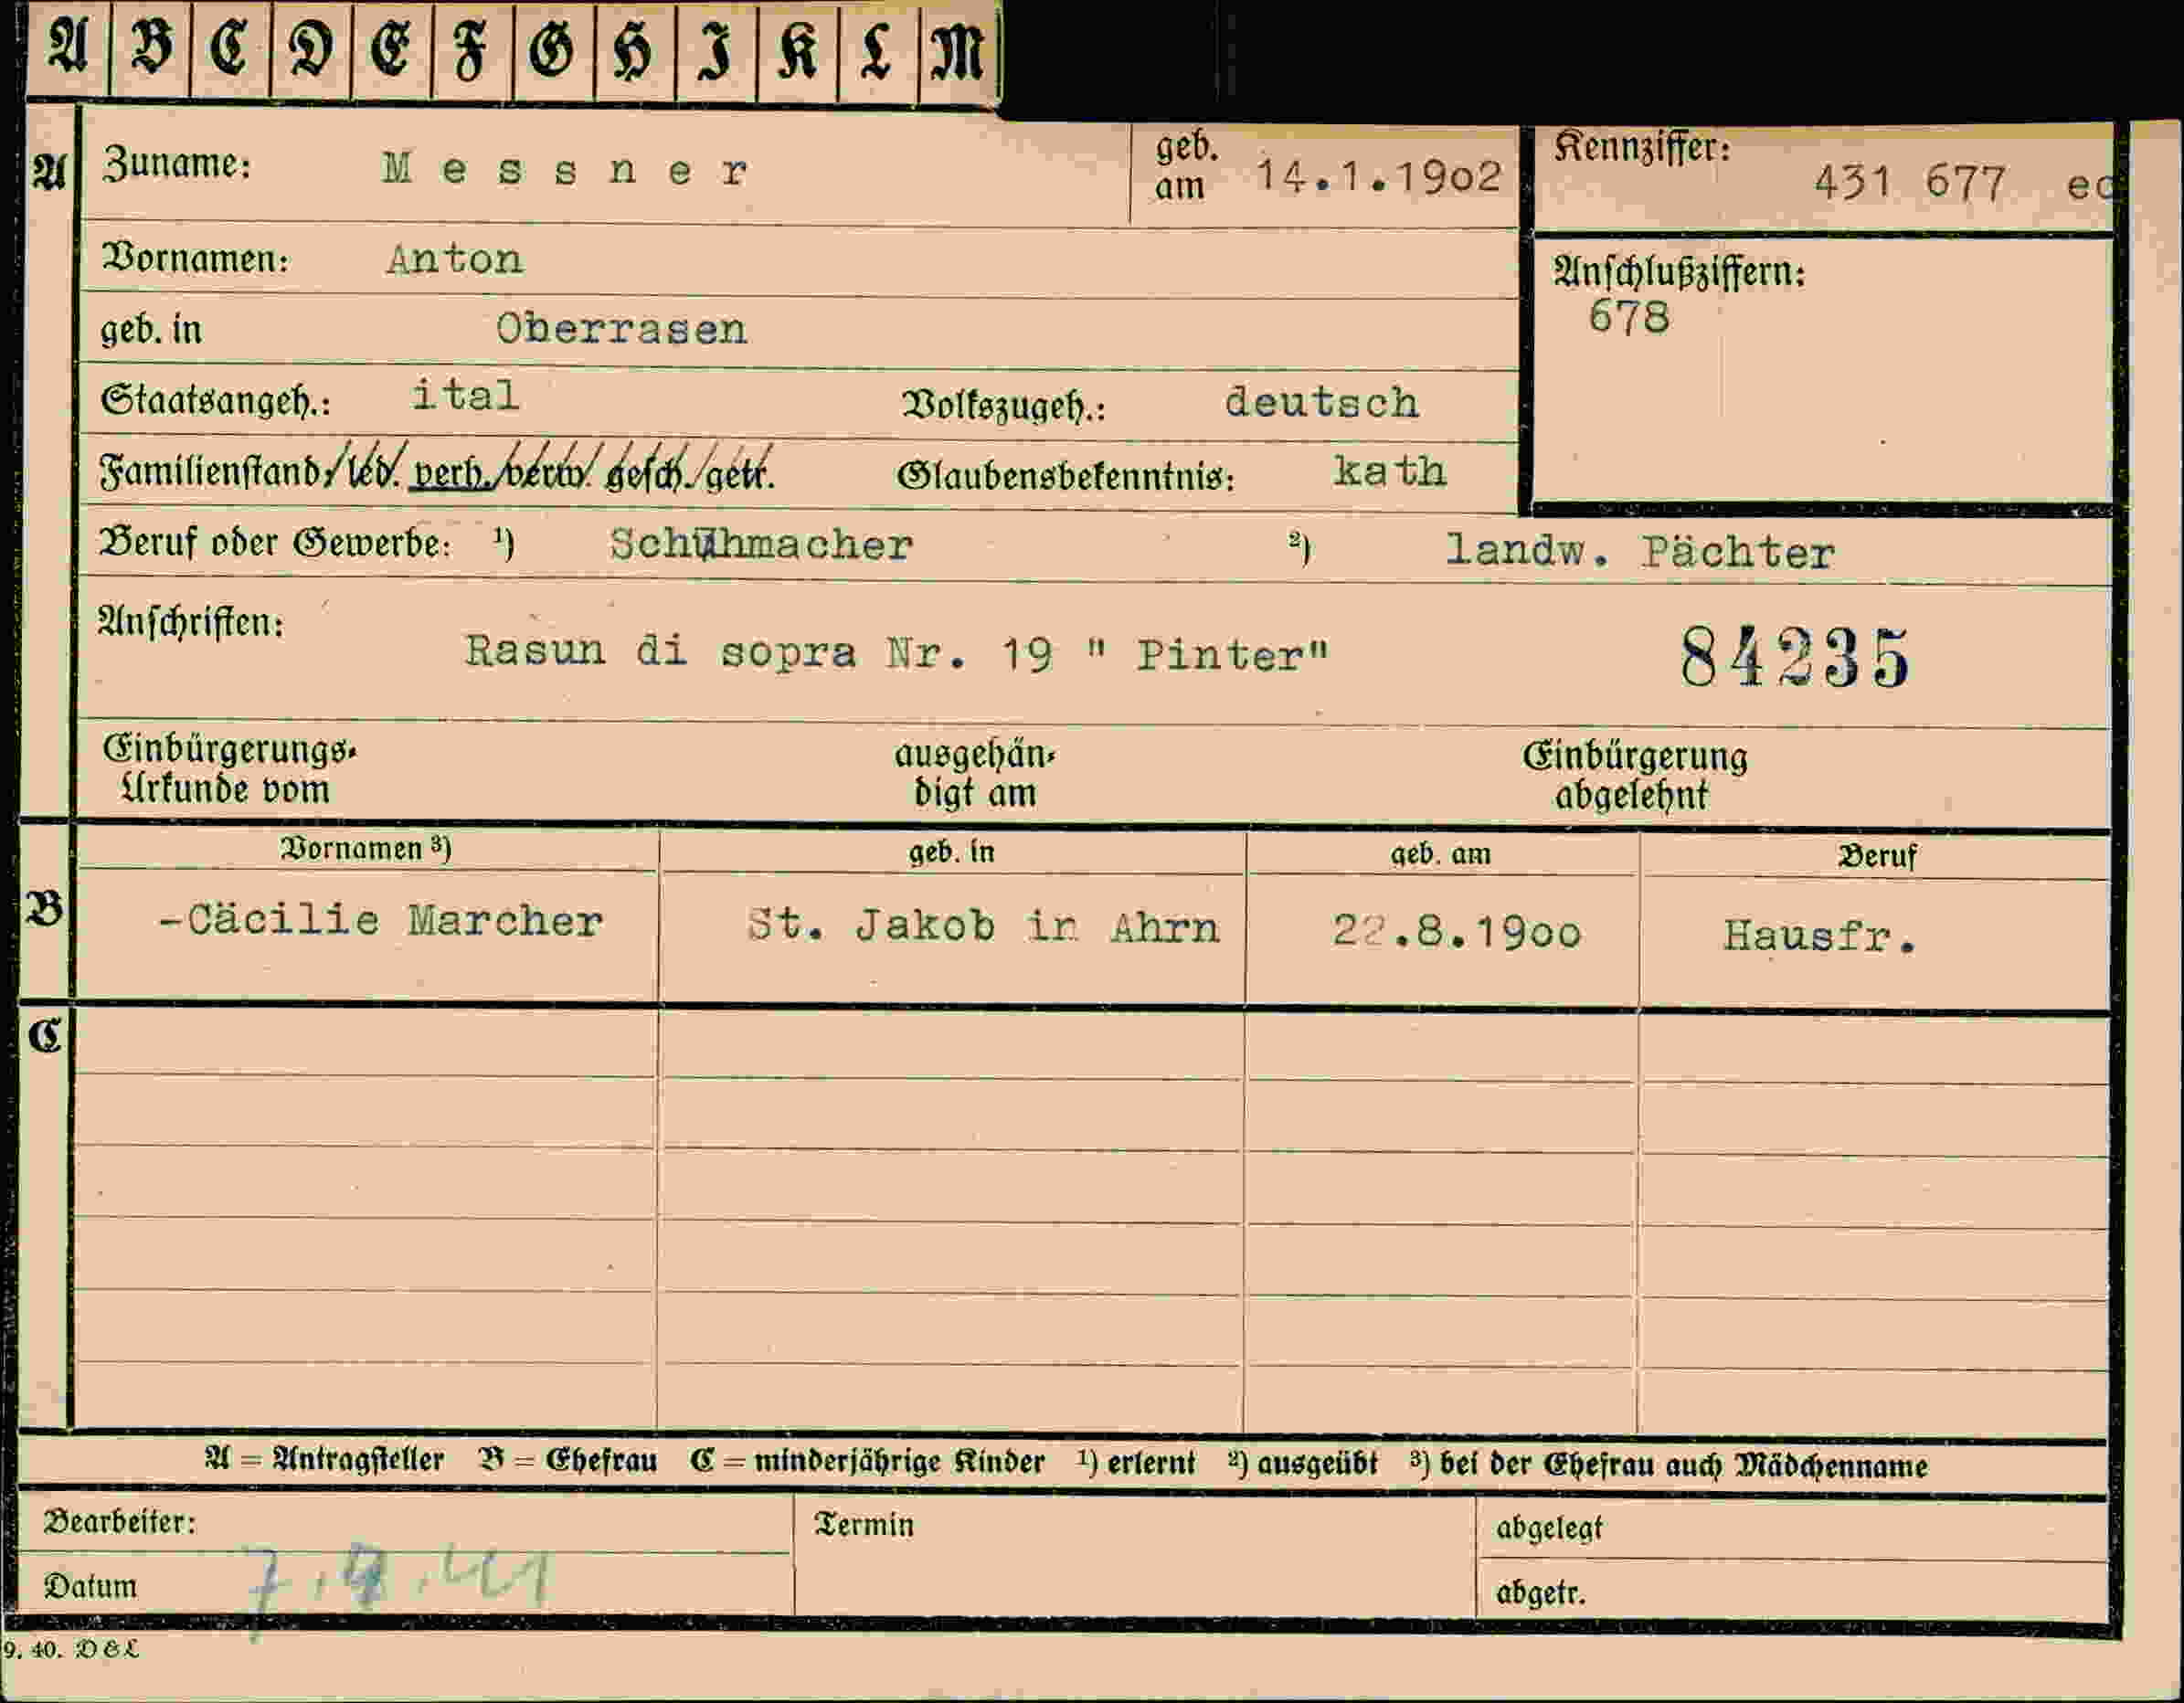 A B C D E F G H I K L M
A Zuname: Messner geb. am 14.1.1902 Kennziffer: 431 677
Vornamen: Anton
Anschlußziffern:
678
geb. in Oberrasen
Staatsangeh.: ital Volkszugeh.: deutsch
Familienstand: led. verh. verw. gesch. getr. Glaubensbekenntnis: kath
Beruf oder Gewerbe: 1) Schuhmacher 2) landw. Pächter
Anschriften: Rasun di sopra Nr. 19 " Pinter" 84235
Einbürgerungs- ausgehän- Einbürgerung
Urkunde vom digt am abgelehnt
Vornamen 3) geb. in geb. am Beruf
B -Cäcilie Marcher St. Jakob in Ahrn 22.8.1900 Hausfr.
C
A = Antragsteller B = Ehefrau C = minderjährige Kinder 1) erlernt 2) ausgeübt 3) bei der Ehefrau auch Mädchenname
Bearbeiter: Termin abgelegt
Datum abgetr.
9. 40. D & L